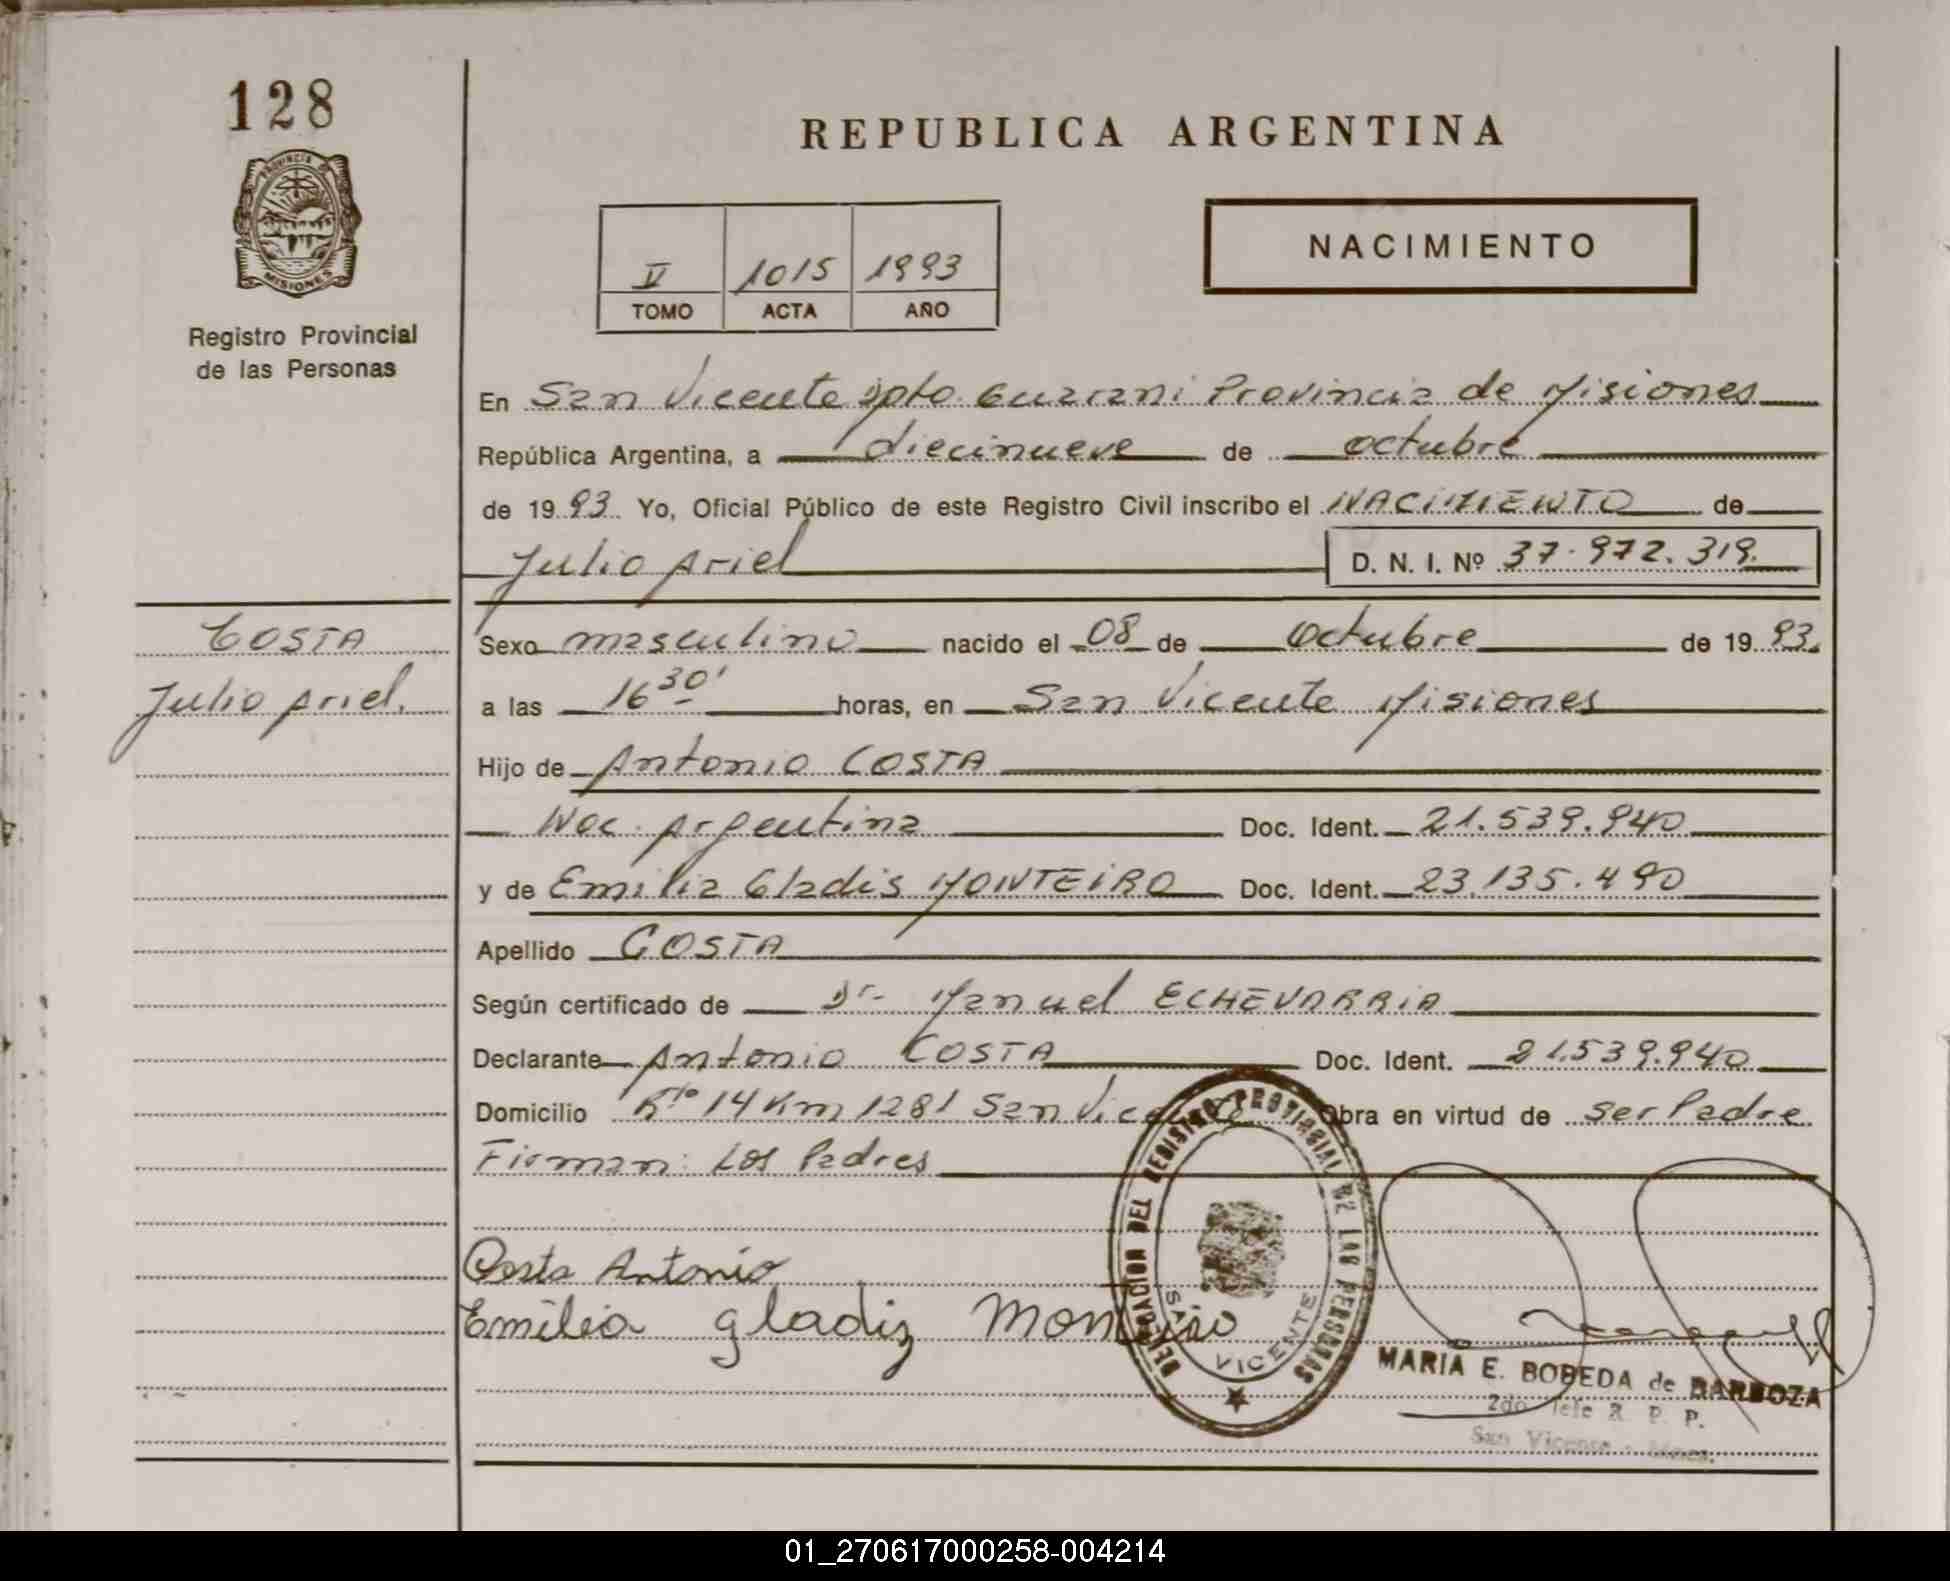 128
PROVINCIA DE
MISIONES
Registro Provincial
de las Personas
REPUBLICA ARGENTINA
V 1015 1993
TOMO ACTA AÑO
NACIMIENTO
En San Vicente Dpto. Guarani Provincia de Misiones
República Argentina, a diecinueve de octubre
de 1993 Yo, Oficial Público de este Registro Civil inscribo el NACIMIENTO de
Julio Ariel D. N. I. Nº 37.972.319.
COSTA
Julio Ariel.
Sexo masculino nacido el 08 de Octubre de 1993.
a las 16 30' horas, en San Vicente Misiones
Hijo de Antonio COSTA
Nac. Argentina Doc. Ident. 21.539.940
y de Emilia Gladis MONTEIRO Doc. Ident. 23.135.490
Apellido COSTA
Según certificado de Dr. Manuel ECHEVARRIA
Declarante Antonio COSTA Doc. Ident. 21.539.940
Domicilio Rta 14 Km 1281 San Vicente Obra en virtud de ser Padre
Firman: Los Padres
Costa Antonio
Emilia gladiz Monteiro
DELEGACION DEL REGISTRO PROVINCIAL DE LAS PERSONAS
SAN VICENTE
MARIA E. BOBEDA de BARBOZA
2do Jefe R. P. P.
San Vicente - Mnes.
01_270617000258-004214